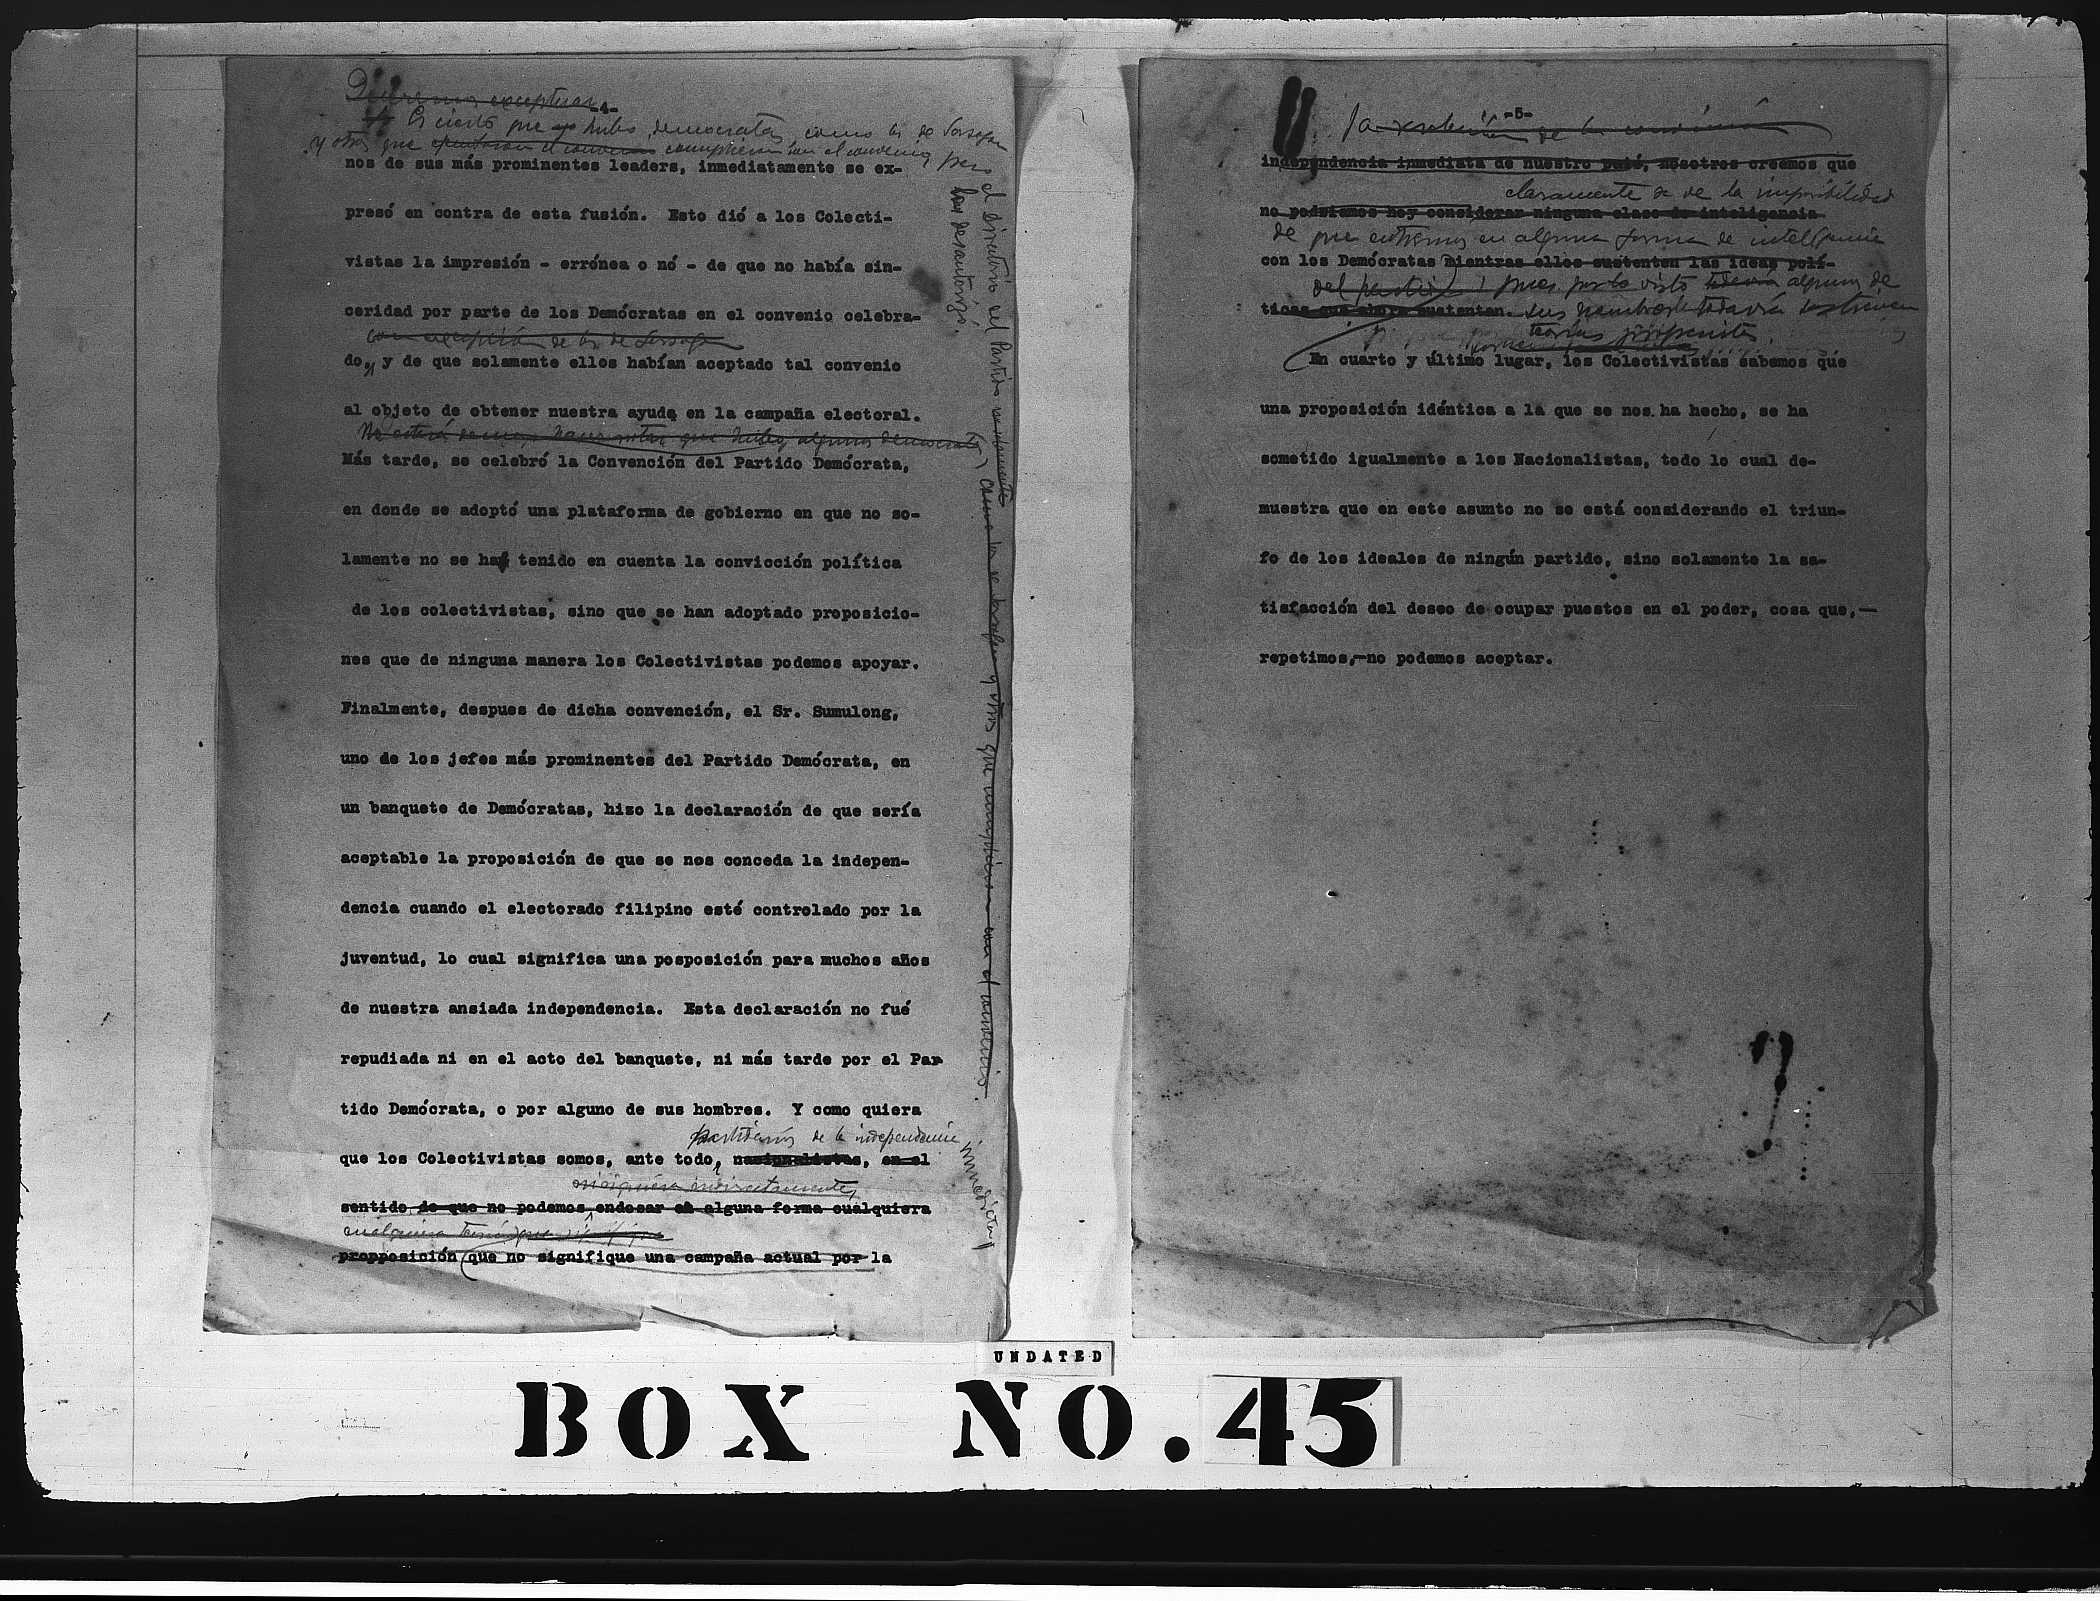 -4-
Es cierto que hubo democratas, como los de Sorsogon
y otros que cumplieron con el convenio, pero
el Directorio del Partido
los desautorizó.
nos de sus más prominentes leaders, inmediatamente se ex-
presó en contra de esta fusión. Esto dió a los Colecti-
vistas la impresión - errónea o nó - de que no había sin-
ceridad por parte de los Demócratas en el convenio celebra-
con excepción de los de Sorsogon
do, y de que solamente ellos habían aceptado tal convenio
al objeto de obtener nuestra ayuda en la campaña electoral.
que hubo algunos democratas,
como los de Sorsogon y otros que cumplieron con el convenio.
Más tarde, se celebró la Convención del Partido Demócrata,
en donde se adoptó una plataforma de gobierno en que no so-
lamente no se ha tenido en cuenta la convicción política
de los colectivistas, sino que se han adoptado proposicio-
nes que de ninguna manera los Colectivistas podemos apoyar.
Finalmente, despues de dicha convención, el Sr. Sumulong,
uno de los jefes más prominentes del Partido Demócrata, en
un banquete de Demócratas, hizo la declaración de que sería
aceptable la proposición de que se nos conceda la indepen-
dencia cuando el electorado filipino esté controlado por la
juventud, lo cual significa una posposición para muchos años
de nuestra ansiada independencia. Esta declaración no fué
repudiada ni en el acto del banquete, ni más tarde por el Par
tido Demócrata, o por alguno de sus hombres. Y como quiera
partidarios de la independencia inmediata
que los Colectivistas somos, ante todo, nacionalistas, en el
ni siquiera indirectamente,
sentido de que no podemos endosar en alguna forma cualquiera
propposición que no signifique una campaña actual por la
-5-
la de la
independencia inmediata de nuestro país, nosotros creemos que
claramente se ve la imposibilidad
no podriamos hoy considerar ninguna clase de inteligencia
de que entremos en alguna forma de inteligencia
con los Demócratas mientras ellos sustenten las ideas polí-
del partido, pues por lo visto algunos de
ticas que ahora sustentan. sus hombres todavía sostienen
teorías
En cuarto y último lugar, los Colectivistas sabemos que
una proposición idéntica a la que se nos ha hecho, se ha
sometido igualmente a los Nacionalistas, todo lo cual de-
muestra que en este asunto no se está considerando el triun-
fo de los ideales de ningún partido, sino solamente la sa-
tisfacción del deseo de ocupar puestos en el poder, cosa que,—
repetimos,—no podemos aceptar.
UNDATED
BOX NO. 45